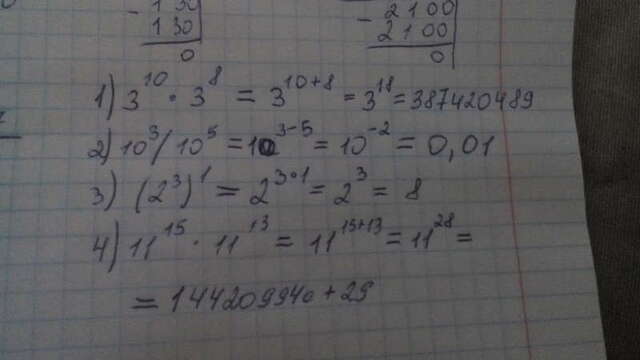 130
130
0
- 2100
2100
0
1) 3^10 · 3^8 = 3^10+8 = 3^18 = 387420489
2) 10^3 / 10^5 = 10^3-5 = 10^-2 = 0,01
3) (2^3)^1 = 2^3·1 = 2^3 = 8
4) 11^15 · 11^13 = 11^15+13 = 11^28 =
= 144209940+29